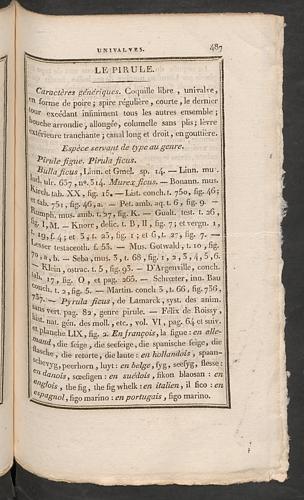 UNIVALVES. 487
LE PIRULE.
Caractères génériques. Coquille libre, univalve,
en forme de poire; spire régulière, courte, le dernier
tour excédant infiniment tous les autres ensemble;
bouche arrondie, allongée, columelle sans plis; lèvre
extérieure tranchante; canal long et droit, en gouttière.
Espèce servant de type au genre.
Pirule figue. Pirula ficus.
Bulla ficus, Linn. et Gmel. sp. 14. — Linn. mu.
lud. ulr. 637, nº. 314. Murex ficus. — Bonann. mus.
Kirch. tab. XX, fig. 15. — List. conch. t. 750, fig. 46;
et tab. 751, fig. 46, a. — Pet. amb. aq. t. 6, fig. 9. —
Rumph. mus. amb. t. 27, fig. K. — Gualt. test. t. 26,
fig. I, M. — Knorr, delic. t. B, II, fig. 7; et vergn. 1,
t. 19, f. 4; et 3, t. 23, fig. 1; et 6, t. 27, fig. 7. —
Lesser testaceoth. f. 53. — Mus. Gotwald, t. 10, fig.
70, a, b. — Seba, mus. 3, t. 68, fig. 1, 2, 3, 4, 5, 6.
— Klein, ostrac. t. 5, fig. 93. — D'Argenville, conch.
tab. 17, fig. O, et pag. 265. — Schrœter, inn. Bau
conch. t. 2, fig. 5. — Martin. conch 3, t. 66, fig. 736,
737. — Pyrula ficus, de Lamarck, syst. des anim.
sans vert. pag. 82, genre pirule. — Félix de Roissy,
hist. nat. gén. des moll., etc., vol. VI, pag. 64 et suiv.
et planche LIX, fig. 2. En français, la figue: en alle-
mand, die feige, die seefeige, die spanische feige, die
flasche, die retorte, die laute: en hollandois, spaan-
schevyg, peerhorn, luyt: en belge, fyg, seefyg, flesse:
en danois, sœefigen: en suédois, fikon blaosan: en
anglois, the fig, the fig whelk: en italien, il fico: en
espagnol, figo marino: en portugais, figo marino.